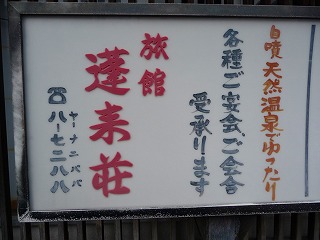 自噴天然温泉でゆったり
各種ご宴会、ご会合
受承ります
旅館
蓬来荘
ヤーナニババ
☎八-七二八八